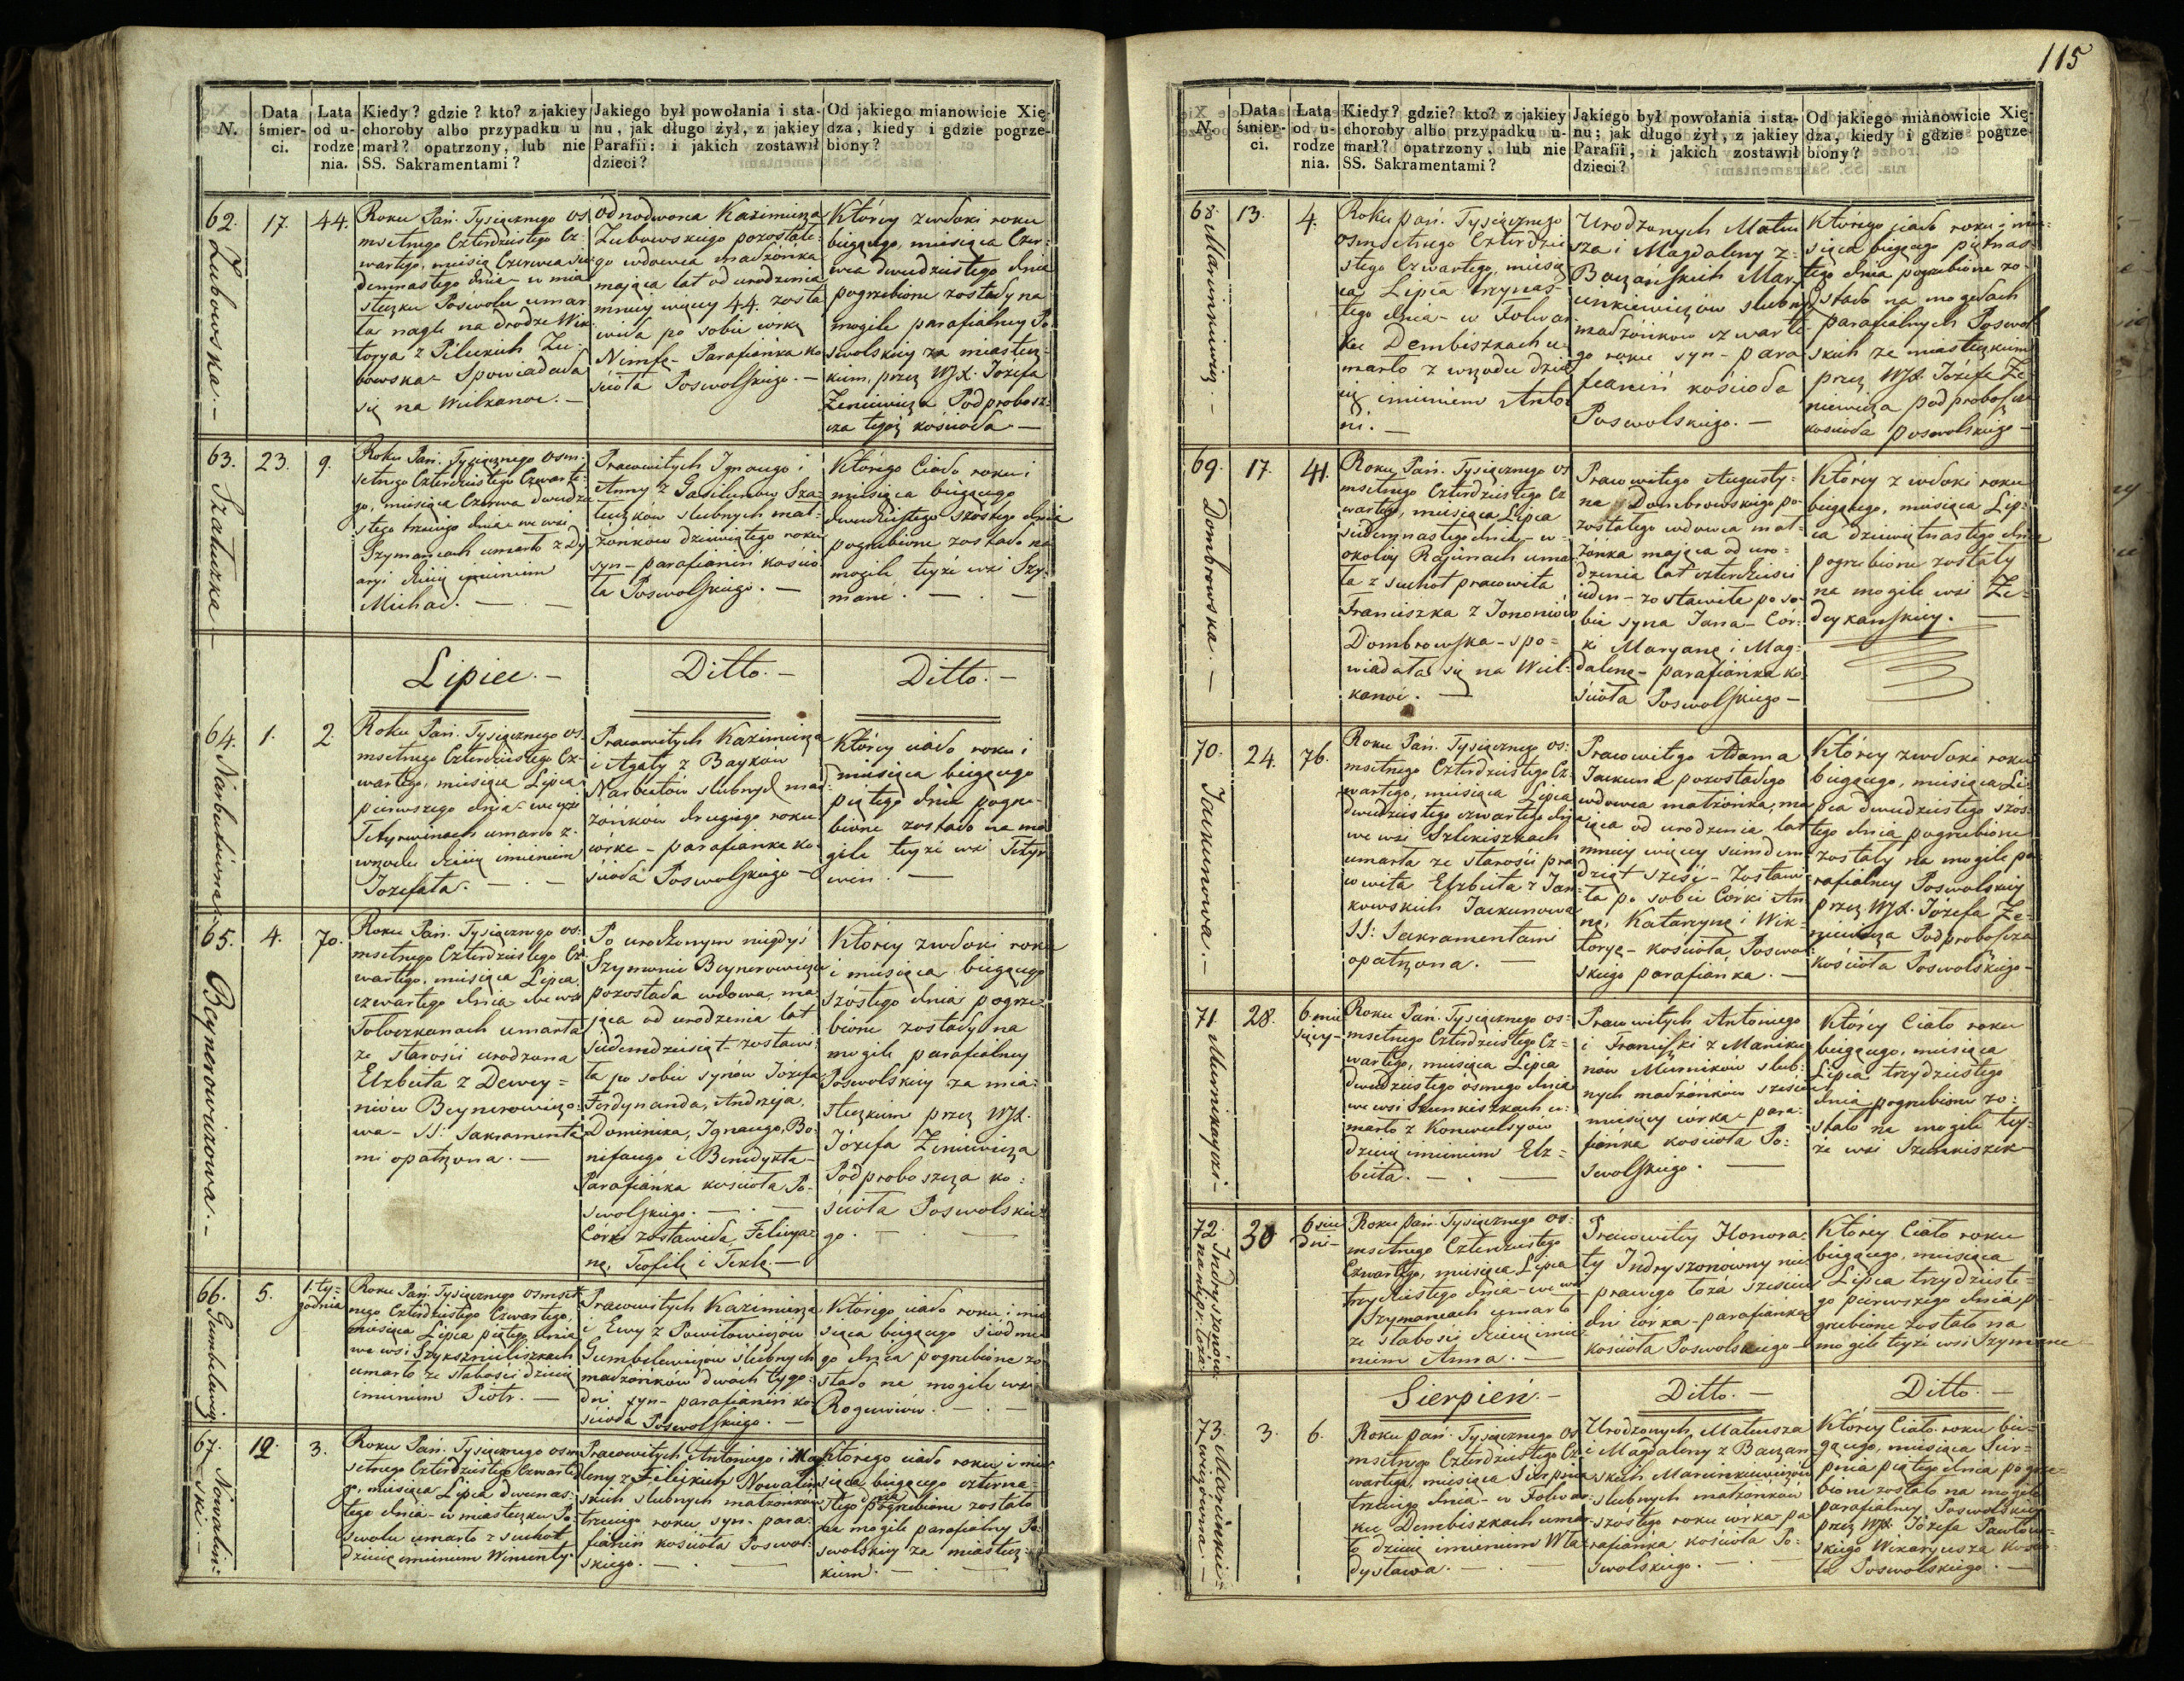 115
N.
Data śmier- ci.
Lata od u- rodze nia.
Kiedy? gdzie? kto? z jakiey
choroby albo przypadku u
marł? opatrzony, lub nie
SS. Sakramentami?
Jakiego był powołania i sta-
nu, jak długo żył, z jakiey
Parafii: i jakich zostawił
dzieci?
Od jakiego mianowicie Xię-
dza, kiedy i gdzie pogrze-
biony?
62. Zubowska.—
17.
44.
Roku Pań. Tysiącznego os
msetnego Czterdziestego Cz-
wartego, miesią Czerwca sie-
demnastego dnia - w mia
steczku Poswolu umar
ła nagle na drodze Wik
torya z Pileckich Zu-
bowska - Spowiadała
się na Wielkanoc.—
odnodworca Kazimierza
Zubowskiego pozostałe-
go wdowca małżonka
mająca lat od urodzenia
mniey więcey 44. zosta
wiła po sobie córkę
Nimfę - Parafianka ko
ścioła Poswolskiego.—
Którey zwłoki roku
biegącego, miesiąca Czer-
wca dwudziestego dnia
pogrzebione zostały na
mogile parafialney Po
swolskiey za miastecz-
kiem, przez WJX. Józefa
Zeniewicza Podprobosz-
cza tegoż kościoła—
63. Szatuzka—
23.
9.
Roku Pań. Tysiącznego osm-
setnego Czterdziestego Czwarte-
go, miesiąca Czerwca dwudzie
stego trzeciego dnia - we wsi
Szymańcach umarło z Dy
aryi dziecię imieniem
Michał.—.—
Pracowitych Ignacego i
Anny z Gasilunow Sza-
tuzków slubnych mał-
żonków dziewiątego roku
syn - parafianin kościo
ła Poswolskiego.—
Którego Ciało roku i
miesiąca biegącego
dwudziestego szóstego dnia
pogrzebione zostało na
mogile teyże wsi Szy-
mańc.—.—
Lipiec.—
Ditto.—
Ditto.—
64. Narbutówna.—
1.
2.
Roku Pań. Tysiącznego os-
msetnego Czterdziestego Cz-
wartego, miesiąca Lipca
pierwszego dnia - we wsi
Tetyrwinach umarło z
wrzodu dziecię imieniem
Jozefata.—.—
Pracowitych Kazimierza
i Agaty z Bayków
Narbutów slubnych mał-
żonków drugiego roku
córka - parafianka ko-
ścioła Poswolskiego—
Którey ciało roku i
miesiąca biegącego
piątego dnia pogrze-
bione zostało na mo
gile teyże wsi Tetyr
win.—
65. Beynerowiczowa.—
4.
70.
Roku Pań. Tysiącznego os-
msetnego Czterdziestego Cz-
wartego, miesiąca Lipca
czwartego dnia - we wsi
Toloczkanach umarła
ze starości urodzona
Elzbieta z Dewey=
niów Beynerowiczo-
wa - SS: Sakramenta
mi opatrzona.—
Po urodzonym niegdyś
Szymonie Beynerowiczu
pozostała wdowa, ma
jąca od urodzenia lat
siedemdziesiąt - zostawi
ła po sobie synów Józefa
Ferdynanda, Andrzeja,
Dominika, Ignacego, Bo-
nifacego i Benedykta -
Parafianka kościoła Po-
swolskiego.—.—
Córki zostawiła, Felicya-
nę, Teofilę i Teklę.—
Którey zwłoki roku
i miesiąca biegącego
szóstego dnia pogrze-
bione zostały na
mogile parafialney
Poswolskiey za mia-
steczkiem przez WJX.
Józefa Zeniewicza
Podproboszcza ko-
ścioła Poswolskie-
go.—
66. Gumbelewicz
5.
1. ty= godnia
Roku Pań. Tysiącznego osmset-
nego Czterdziestego Czwartego,
miesiąca Lipca piątego dnia
we wsi Szyksznieliszkach
umarło ze słabości dziecię
imieniem Piotr.—
Pracowitych Kazimierza
i Ewy z Powiłowiczów
Gumbelewiczów slubnych
małżonków dwoch tygo-
dni syn - parafianin ko
ścioła Poswolskiego.—
Którego ciało roku i mie
siąca biegącego siódme
go dnia pogrzebione zo
stało na mogile wsi
Roguwiów.—.—
67. Nowaliń-ski.—
12.
3.
Roku Pań. Tysiącznego osm
setnego Czterdziestego Czwarte
go, miesiąca Lipca dwunas-
tego dnia - w miasteczku Po-
swolu umarło z suchot
dziecię imieniem Wincenty.
Pracowitych Antoniego i Mag
leny z Filickich Nowaliń
skich slubnych małżonków
trzeciego roku syn - para-
fianin kościoła Poswol-
skiego.—.—
Którego ciało roku i mie
siąca biegącego czterna-
stego dnia pogrzebione zostało
na mogile parafialney Po-
swolskiey za miastecz-
kiem.—.—
N.
Data śmier- ci.
Lata od u- rodze nia.
Kiedy? gdzie? kto? z jakiey
choroby albo przypadku u-
marł? opatrzony, lub nie
SS. Sakramentami?
Jakiego był powołania i sta-
nu; jak długo żył, z jakiey
Parafii, i jakich zostawił
dzieci?
Od jakiego mianowicie Xię-
dza, kiedy i gdzie pogrze-
biony?
68. Marcinkiewicz.—
13.
4.
Roku pań. Tysiącznego
osmsetnego Czterdzie
stego Czwartego, miesią
ca Lipca trzynas-
tego dnia - w Folwar
ku Dembiszkach u-
marło z wrzodu dzie
cię imieniem Anto
ni.—
Urodzonych Mateu
sza i Magdaleny z
Baczańskich Mar
cinkiewiczów slubnych
małżonków czwarte-
go roku syn - para
fianin kościoła
Poswolskiego.—
Którego ciało roku i mie-
siąca biegącego piętnas
tego dnia pogrzebione zo-
stało na mogiłach
parafialnych Poswol
skich za miasteczkiem
przez WJX. Józefa Ze-
niewicza podproboszcza
kościoła poswolskiego—
69. Dombrowska.—
17.
41.
Roku Pań. Tysiącznego os
msetnego Czterdziestego Cz
wartego, miesiąca Lipca
siedemnastego dnia - w
okolicy Rajunach umar
ła z suchot pracowita
Franciszka z Jononiów
Dombrowska - spo=
wiadała się na Wiel-
kanoc.—
Pracowitego Augusty-
na Dombrowskiego po-
zostałego wdowca mał-
żonka mająca od uro-
dzenia lat czterdzieści
jeden - zostawiła po so-
bie syna Jana - Cór-
ki Maryanę i Mag-
dalenę - parafianka ko
ścioła Poswolskiego—
Którey zwłoki roku
biegącego, miesiąca Lip-
ca dziewiętnastego dnia
pogrzebione zostały
na mogile wsi Ze-
deykańskiey.—
70. Jackunowa.—
24.
76.
Roku Pań. Tysiącznego os-
msetnego Czterdziestego Cz-
wartego, miesiąca Lipca
dwudziestego czwartego dnia
we wsi Szlekiszkach
umarła ze starości pra
cowita Elzbieta z Jan-
kowskich Jackunowa
SS: Sakramentami
opatrzona.—
Pracowitego Adama
Jackuna pozostałego
wdowca małżonka, ma
jąca od urodzenia lat
mniey więcey siemdem
dziąt sześć - zostawi
ła po sobie Córki An
nę, Katarzynę i Wik-
toryę - kościoła Poswol
skiego parafianka.—
Którey zwłoki roku
biegącego, miesiąca Li-
pca dwudziestego szós-
tego dnia pogrzebione
zostały na mogile pa-
rafialney Poswolskiey
przez WJX. Józefa Ze-
niewicza Podproboszcza
kościoła Poswolskiego—
71 Murnikaycz—
28.
6 mie sięcy-
Roku Pań. Tysiącznego os-
msetnego Czterdziestego Cz=
wartego, miesiąca Lipca
dwudziestego osmego dnia
we wsi Szemkiszkach u-
marło z Konwulsyow
dziecię imieniem Elz=
bieta.—.—
Pracowitych Antoniego
i Franciszki z Maniku
nów Murników slub-
nych małżonków sześciu
miesięcy córka - para-
fianka kościoła Po-
swolskiego.—
Którey Ciało roku
biegącego, miesiąca
Lipca trzydziestego
dnia pogrzebione zo-
stało na mogile tey-
że wsi Szemkiszek
72. Indryszonówna niepr: łoża.
30
6 siu dni-
Roku pań. Tysiącznego os-
msetnego Czterdziestego
Czwartego, miesiąca Lipca
trzydziestego dnia - we wsi
Szymańcach umarło
ze słabości dziecię imie
niem Anna.—
Pracowitey Honora-
ty Indryszonówny nie
prawego łoża sześciu
dni córka - parafianka
kościoła Poswolskiego—
Którey Ciało roku
biegącego, miesiąca
Lipca trzydzieste=
go pierwszego dnia po
grzebione zostało na
mogile teyże wsi Szymańc
Sierpień.—
Ditto.—
Ditto.—
73 Marcinkie=wiczówna.—
3.
6.
Roku pań. Tysiącznego os
msetnego Czterdziestego Cz-
wartego, miesiąca Sierpnia
trzeciego dnia - w Folwar-
ku Dembiszkach umar-
ło dziecię imieniem Wła
dysława.—.
Urodzonych Mateusza
i Magdaleny z Baczań
skich Marcinkiewiczów
slubnych małżonków
szóstego roku córka - pa
rafianka kościoła Po-
swolskiego.—.—
Którey Ciało roku bie-
gącego, miesiąca Sier=
pnia piątego dnia pogrze-
bione zostało na mogile
parafialney Poswolskiey
przez WJX. Józefa Pawłow-
skiego Wikaryusza kościo-
ła Poswolskiego.—